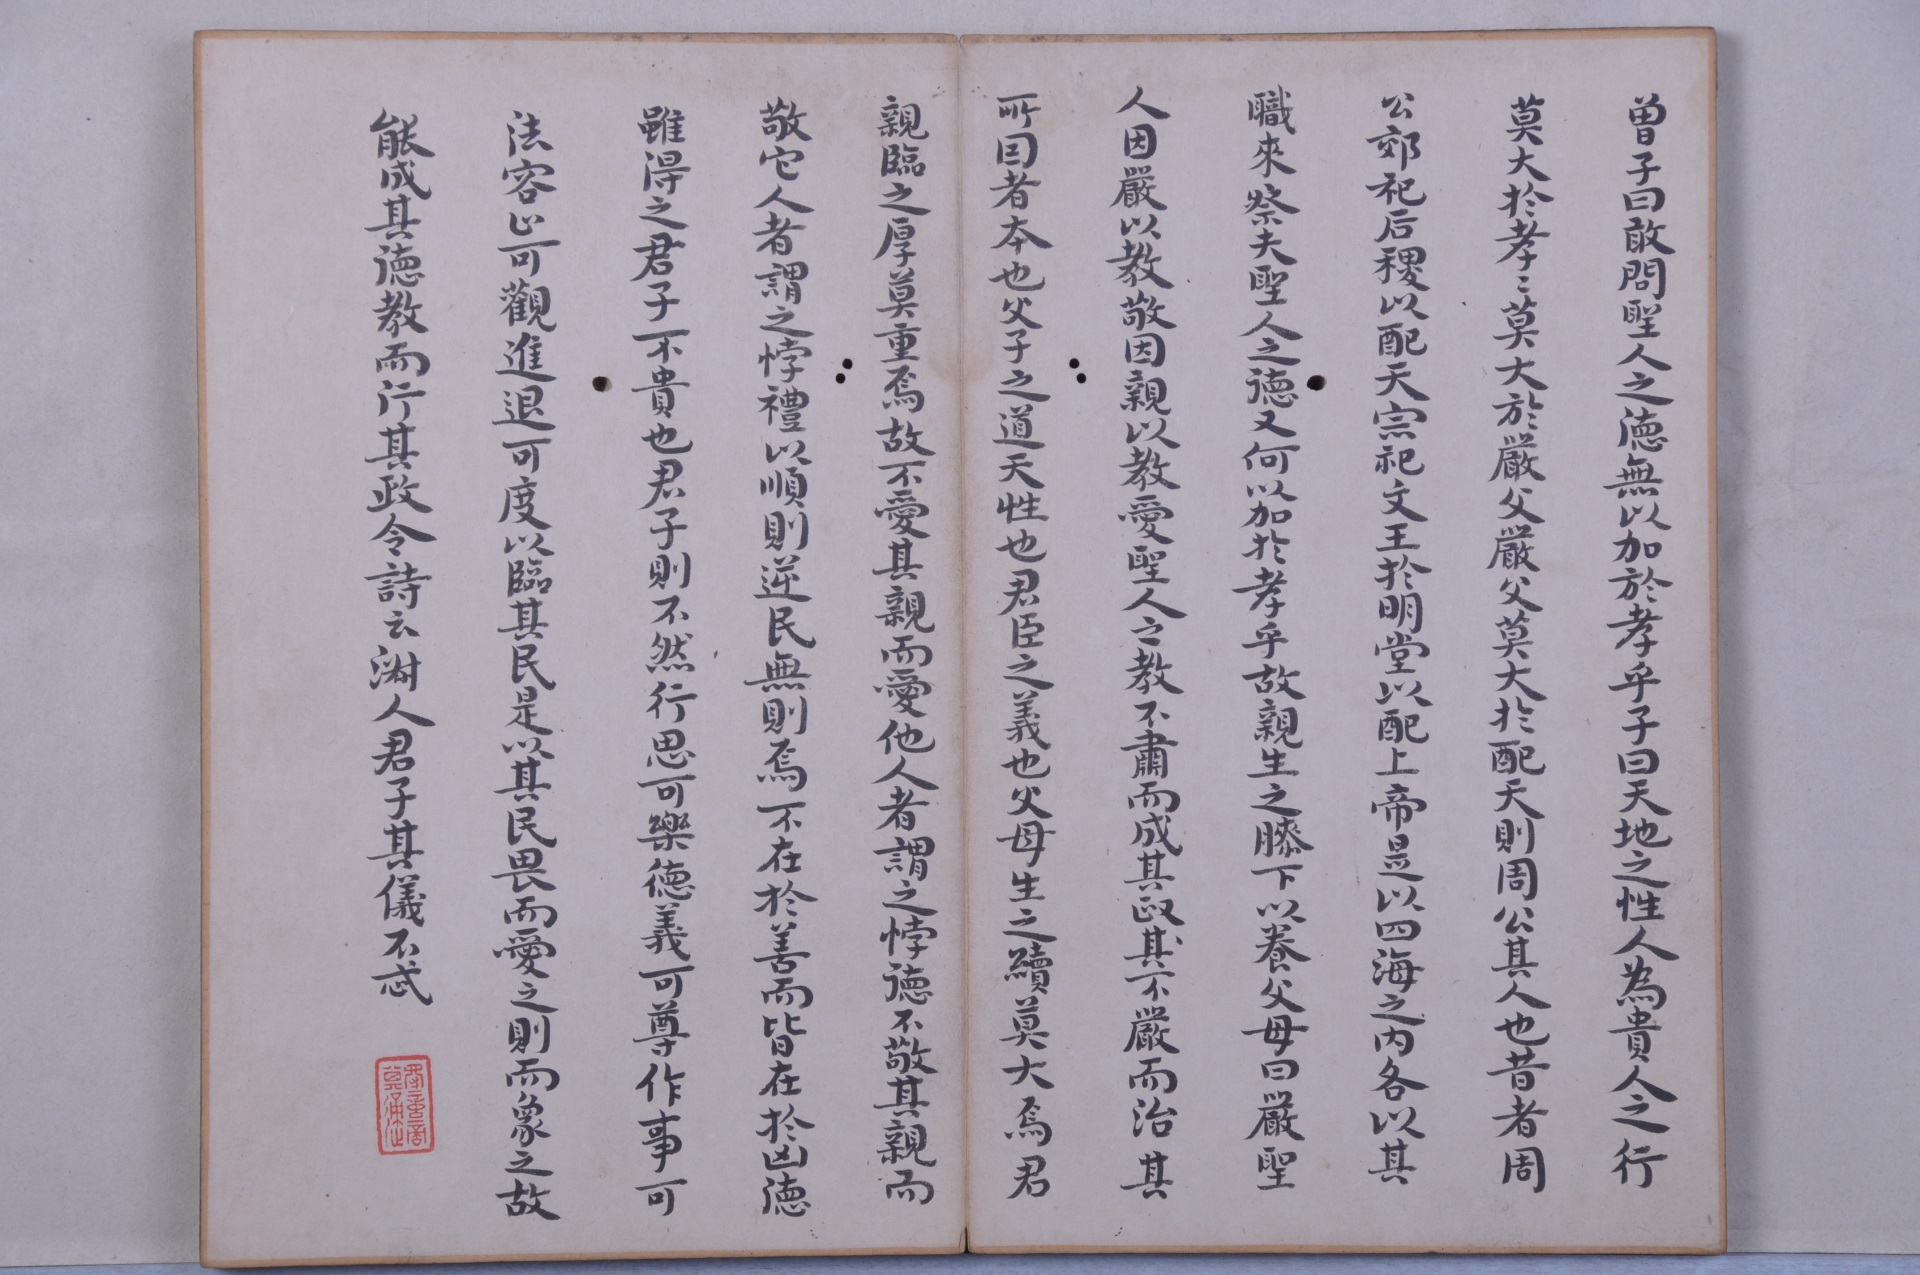 曽子曰敢問聖人之徳無以加於孝乎子曰天地之性人為貴人之行
莫大於孝〻莫大於嚴父嚴父莫大於配天則周公其人也昔者周
公郊祀后稷以配天宗祀文王於明堂以配上帝是以四海之内各以其
職來祭夫聖人之徳又何以加於孝乎故親生之膝下以養父母曰嚴聖
人因嚴以教敬因親以教愛聖人之教不肅而成其政其不嚴而治其
所因者本也父子之道天性也君臣之義也父母生之續莫大焉君
親臨之厚莫重焉故不愛其親而愛他人者謂之悖徳不敬其親而
敬它人者謂之悖禮以順則逆民無則焉不在於善而皆在於凶徳
雖得之君子不貴也君子則不然行思可樂徳義可尊作事可
法容止可觀進退可度以臨其民是以其民畏而愛之則而象之故
能成其徳教而行其政令詩云淑人君子其儀不忒